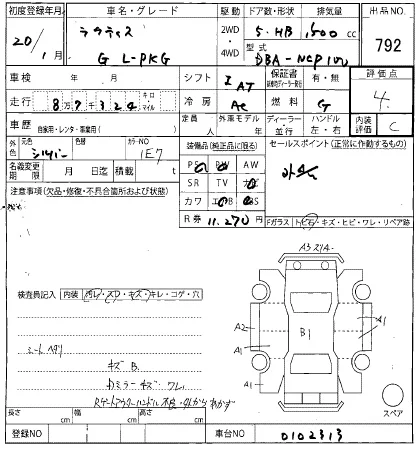 初度登録年月 車名・グレード 駆動 ドア数・形状 排気量 出品NO
20/1月 ラクティス 2WD・4WD 5・HB 1,500cc 792
G L-PKG 型式 DBA-NCP100
車検 年 月 シフト IAT 保証書 有・無 評価点
走行 8万7千324 キロ マイル 冷房 AC 燃料 G 4
車歴 自家用・レンタ・事業用( ) 定員 人 外車モデル 年 ディーラー 並行 ハンドル 左・右 内装評価 C
外色 元色 シルバー 色 カラーNO 1E7 装備品(純正に限る) セールスポイント(正常に作動するもの)
名義変更期限 月 日迄 積載 t PS PW AW
注意事項(欠品・修復・不具合箇所および状態) SR TV ナビ
カワ エアB ABS
R券 11,270円 Fガラス トビ石・キズ・ヒビ・ワレ・リペア跡
A3スリキ
検査員記入 内装 汚レ・スレ・キズ・キレ・コゲ・穴
A2 B1 A1
A1 A1
シートヘタリ
キズB
ミラーキズ ワレ
A1
スペア
Rゲートアウターハンドル不良・外から
長さ cm 幅 cm 高さ cm
登録NO 車台NO 0102313